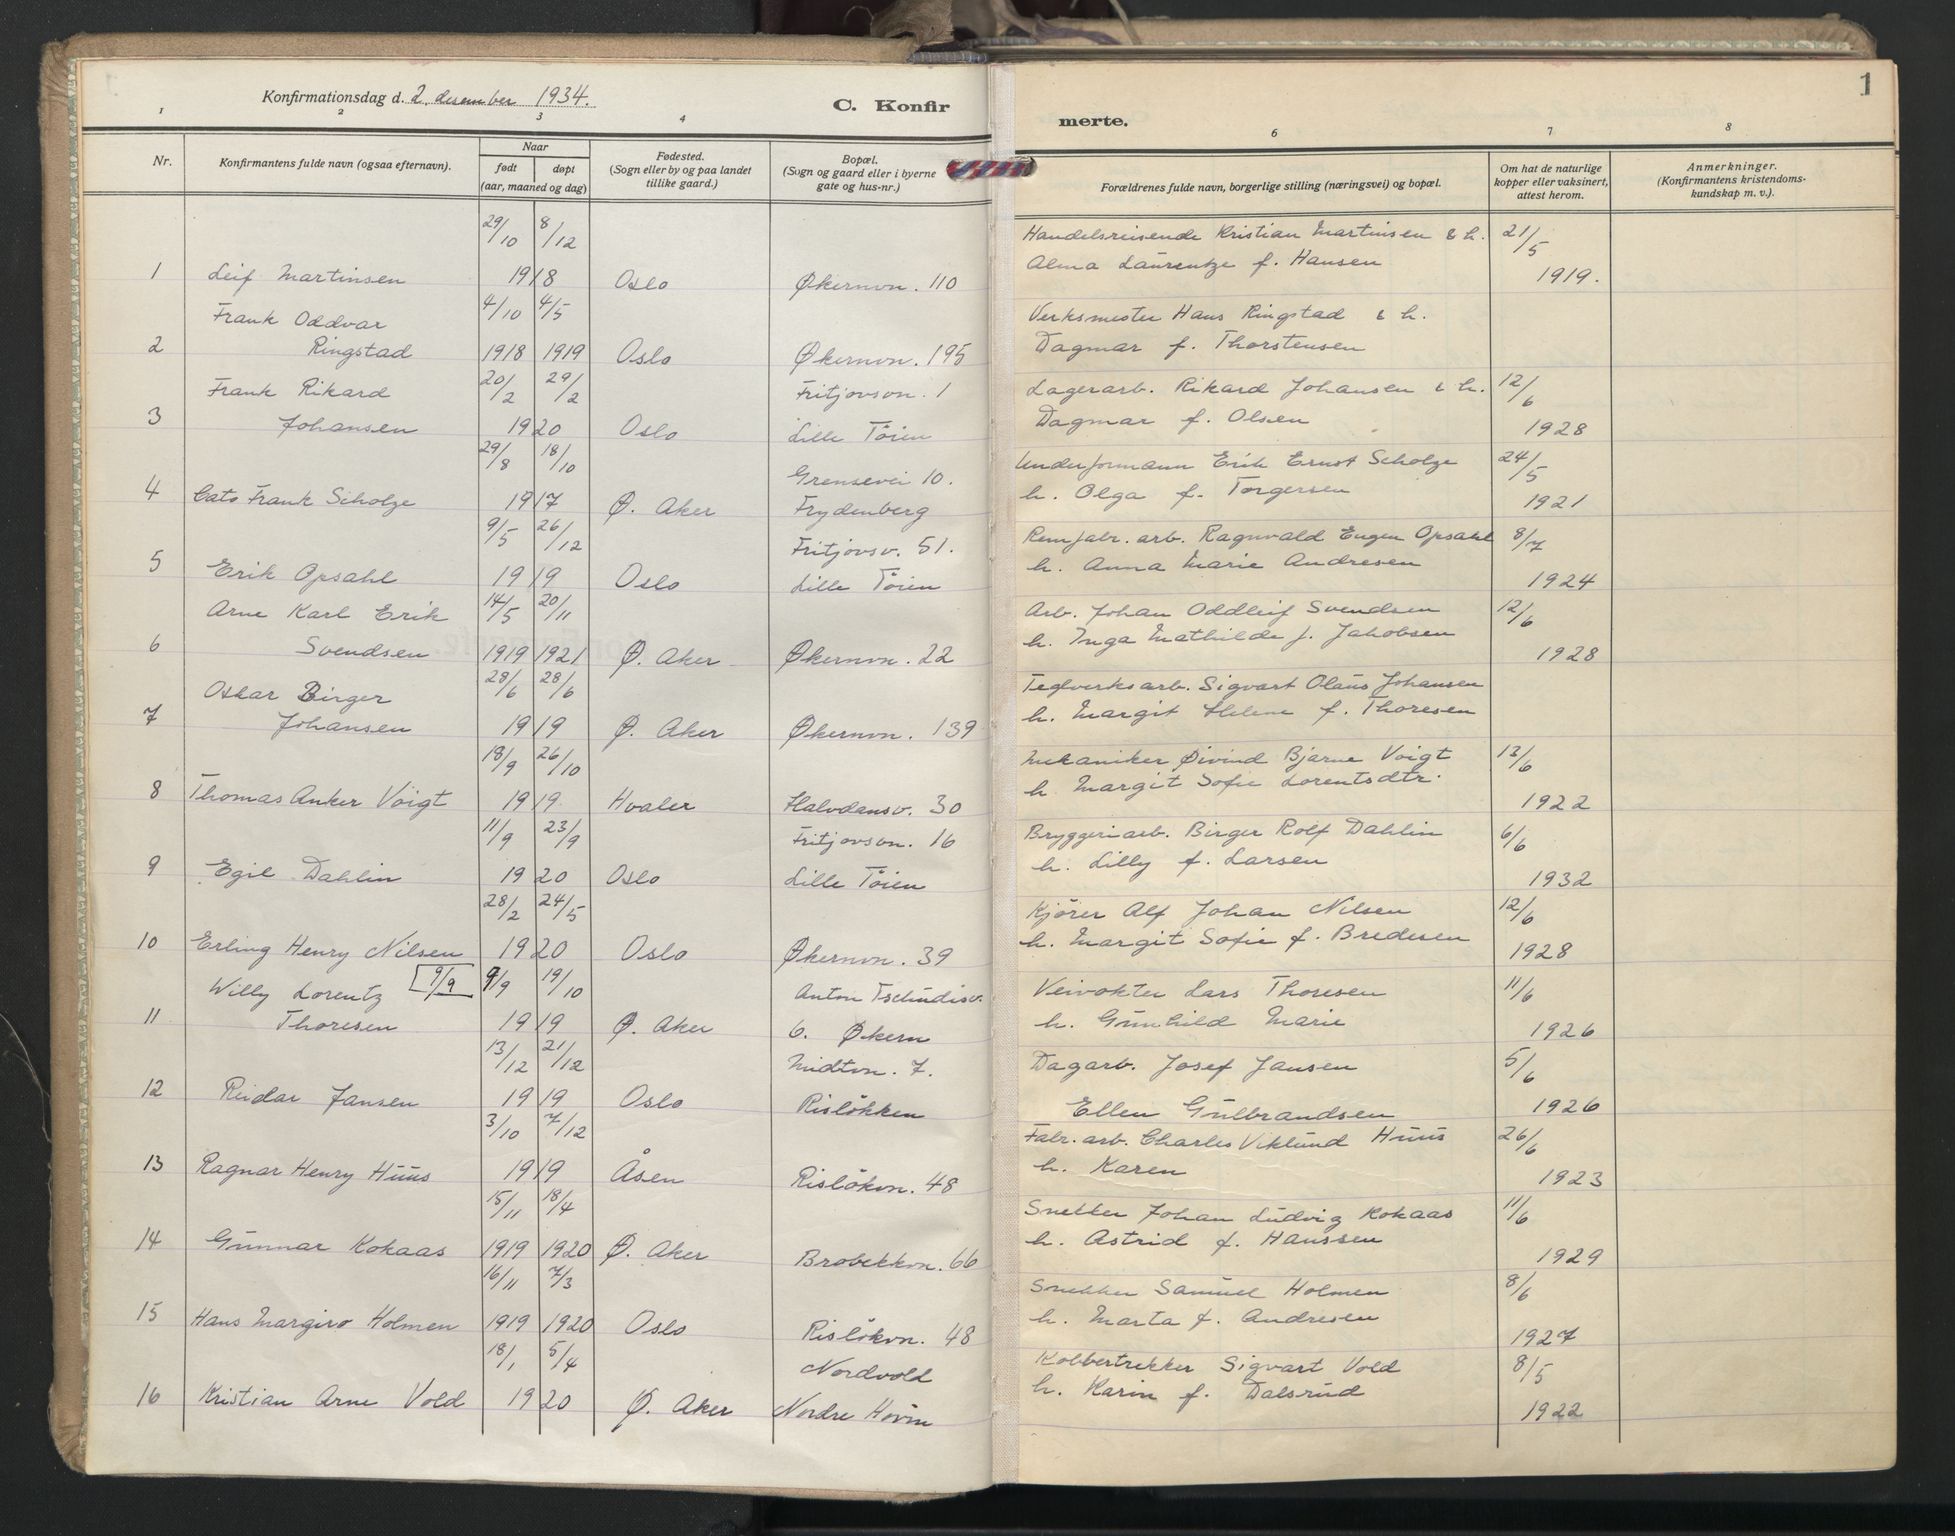 Konfirmationsdag d. 2. desember 1934.
C. Konfir
merte.
1
1 2 3 4 6 7 8
Nr.
Konfirmantens fulde navn (ogsaa efternavn).
Naar
født døpt
(aar, maaned og dag)
Fødested.
(Sogn eller by og paa landet
tillike gaard.)
Bopæl.
(Sogn og gaard eller i byerne
gate og hus-nr.)
Forældrenes fulde navn, borgerlige stilling (næringsvei) og bopæl.
Om hat de naturlige
kopper eller vaksinert,
attest herom.
Anmerkninger.
(Konfirmantens kristendoms-
kundskap m. v.).
29/10 8/12 Handelsreisende Kristian Martinsen & h. 21/5
1 Leif Martinsen 1918 Oslo Økernvn. 110 Alma Laurentze f. Hansen 1919.
Frank Oddvar 4/10 4/5 Verksmester Hans Ringstad & h.
2 Ringstad 1918 1919 Oslo Økernvn. 195 Dagmar f. Thorstensen
Frank Rikard 20/2 29/2 Fritjovsvn. 1 Lagerarb. Rikard Johansen & h. 12/6
3 Johansen 1920 Oslo Lille Töien Dagmar f. Olsen 1928
29/8 18/10 Grensevei 10. Underformann Erik Ernst Scholze 24/5
4 Cato Frank Scholze 1917 Ø. Aker Frydenberg h. Olga f. Torgersen 1921
9/5 26/12 Fritjovsv. 51. Remfabr. arb. Ragnvald Eugen Opsahl 8/7
5 Erik Opsahl 1919 Oslo Lille Töien h. Anna Marie Andresen 1924
Arne Karl Erik 14/5 20/11 Arb. Johan Oddleif Svendsen 12/6
6 Svendsen 1919 1921 Ø. Aker Økernvn. 22 h. Inga Mathilde f. Jakobsen 1928
Oskar Birger 28/6 28/6 Teglverksarb. Sigvart Olaus Johansen
7 Johansen 1919 Ø. Aker Økernvn. 139 h. Margit Helene f. Thoresen
18/9 26/10 Mekaniker Øivind Bjarne Voigt 13/6
8 Thomas Anker Voigt 1919 Hvaler Halvdansv. 30 h. Margit Sofie Lorentsdtr. 1922
11/9 23/9 Fritjovsvn. 16 Bryggeriarb. Birger Rolf Dahlin 6/6
9 Egil Dahlin 1920 Oslo Lille Töien h. Lilly f. Larsen 1932
28/2 24/5 Kjörer Alf Johan Nilsen 12/6
10 Erling Henry Nilsen 1920 Oslo Økernvn. 39 h. Margit Sofie f. Bredesen 1928
Willy Lorentz 9/9 9/9 19/10 Anton Tschudisv. Veivokter Lars Thoresen 11/6
11 Thoresen 1919 Ø. Aker 6. Økern h. Gunhild Marie 1926
13/12 21/12 Midtvn. 7. Dagarb. Josef Jansen 5/6
12 Reidar Jansen 1919 Oslo Rislökken Ellen Gulbrandsen 1926
3/10 7/12 Fabr. arb. Charles Viklund Huus 26/6
13 Ragnar Henry Huus 1919 Åsen Rislökvn. 48 h. Karen 1923
15/11 18/4 Snekker Johan Ludvig Kokaas 11/6
14 Gunnar Kokaas 1919 1920 Ø. Aker Brobekkvn. 66 h. Astrid f. Hanssen 1929
16/11 7/3 Snekker Samuel Holmen 8/6
15 Hans Margiro Holmen 1919 1920 Oslo Rislökvn. 48 h. Marta f. Andresen 1927
18/1 5/4 Nordvold Kobbertrekker Sigvart Vold 8/5
16 Kristian Arne Vold 1920 Ø. Aker Nordre Hovin h. Karin f. Dalsrud 1922